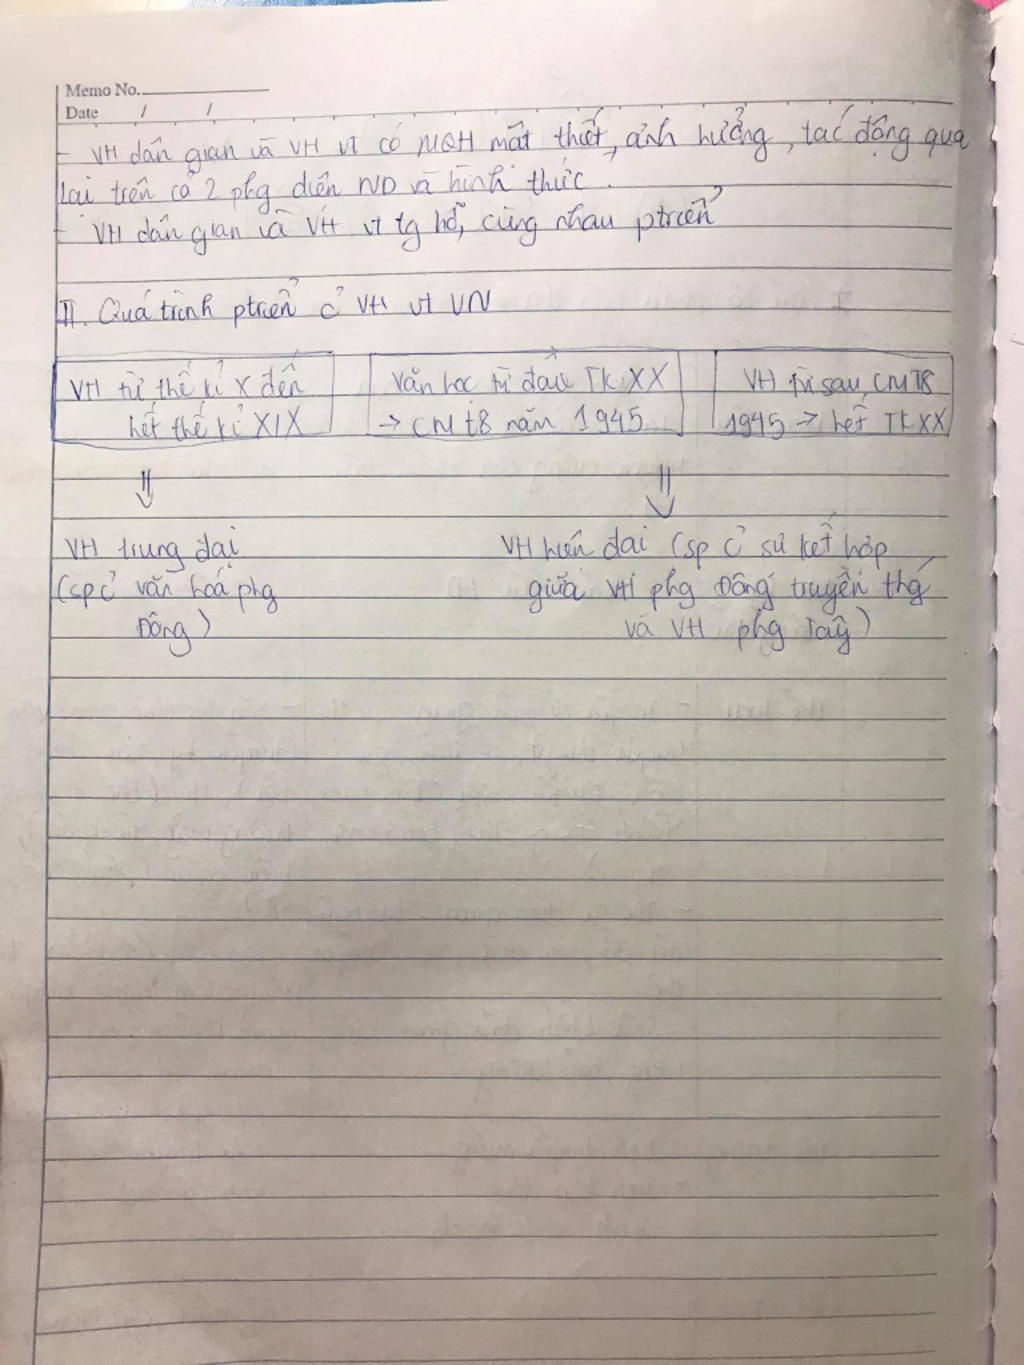 Memo No.
Date / /
- VH dân gian và VH vt có MQH mật thiết, ảnh hưởng, tác động qua
lại trên cả 2 phg diện ND và hình thức.
- VH dân gian và VH vt tg hỗ, cùng nhau ptriển
II. Quá trình ptriển củ VH vt VN
VH từ thế kỉ X đến
hết thế kỉ XIX
Văn học từ đầu TK XX
→ CMT8 năm 1945
VH từ sau CMT8
1945 → hết TK XX
⇓ ⇓
VH trung đại
(sp củ văn hoá phg
Đông)
VH hiện đại (sp củ sự kết hợp
giữa VH phg Đông truyền thg
và VH phg Tây)